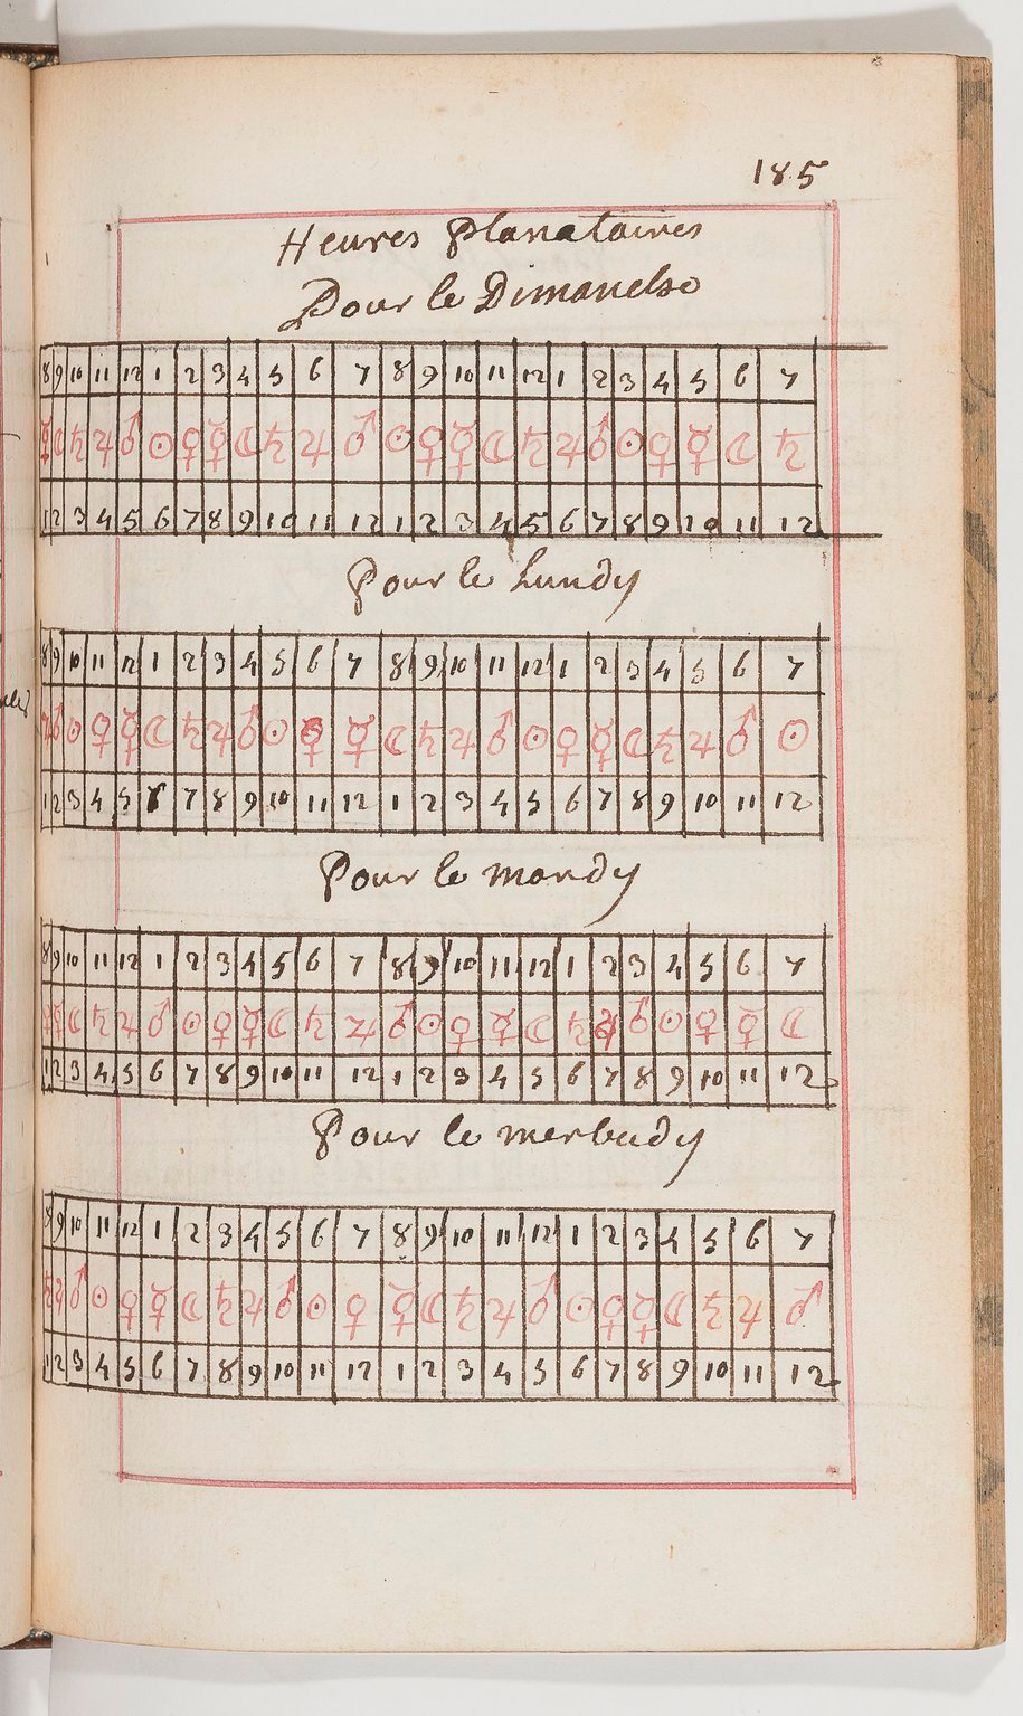 185
Heures Planataires
Pour le Dimanche
8 9 10 11 12 1 2 3 4 5 6 7 8 9 10 11 12 1 2 3 4 5 6 7
☿ ☾ ♄ ♃ ♂ ☉ ♀ ☿ ☾ ♄ ♃ ♂ ☉ ♀ ☿ ☾ ♄ ♃ ♂ ☉ ♀ ☿ ☾ ♄
1 2 3 4 5 6 7 8 9 10 11 12 1 2 3 4 5 6 7 8 9 10 11 12
Pour le Lundy
8 9 10 11 12 1 2 3 4 5 6 7 8 9 10 11 12 1 2 3 4 5 6 7
♃ ♂ ☉ ♀ ☿ ☾ ♄ ♃ ♂ ☉ ♀ ☿ ☾ ♄ ♃ ♂ ☉ ♀ ☿ ☾ ♄ ♃ ♂ ☉
1 2 3 4 5 6 7 8 9 10 11 12 1 2 3 4 5 6 7 8 9 10 11 12
Pour le mardy
8 9 10 11 12 1 2 3 4 5 6 7 8 9 10 11 12 1 2 3 4 5 6 7
♀ ☿ ☾ ♄ ♃ ♂ ☉ ♀ ☿ ☾ ♄ ♃ ♂ ☉ ♀ ☿ ☾ ♄ ♃ ♂ ☉ ♀ ☿ ☾
1 2 3 4 5 6 7 8 9 10 11 12 1 2 3 4 5 6 7 8 9 10 11 12
Pour le merkudy
8 9 10 11 12 1 2 3 4 5 6 7 8 9 10 11 12 1 2 3 4 5 6 7
♄ ♃ ♂ ☉ ♀ ☿ ☾ ♄ ♃ ♂ ☉ ♀ ☿ ☾ ♄ ♃ ♂ ☉ ♀ ☿ ☾ ♄ ♃ ♂
1 2 3 4 5 6 7 8 9 10 11 12 1 2 3 4 5 6 7 8 9 10 11 12